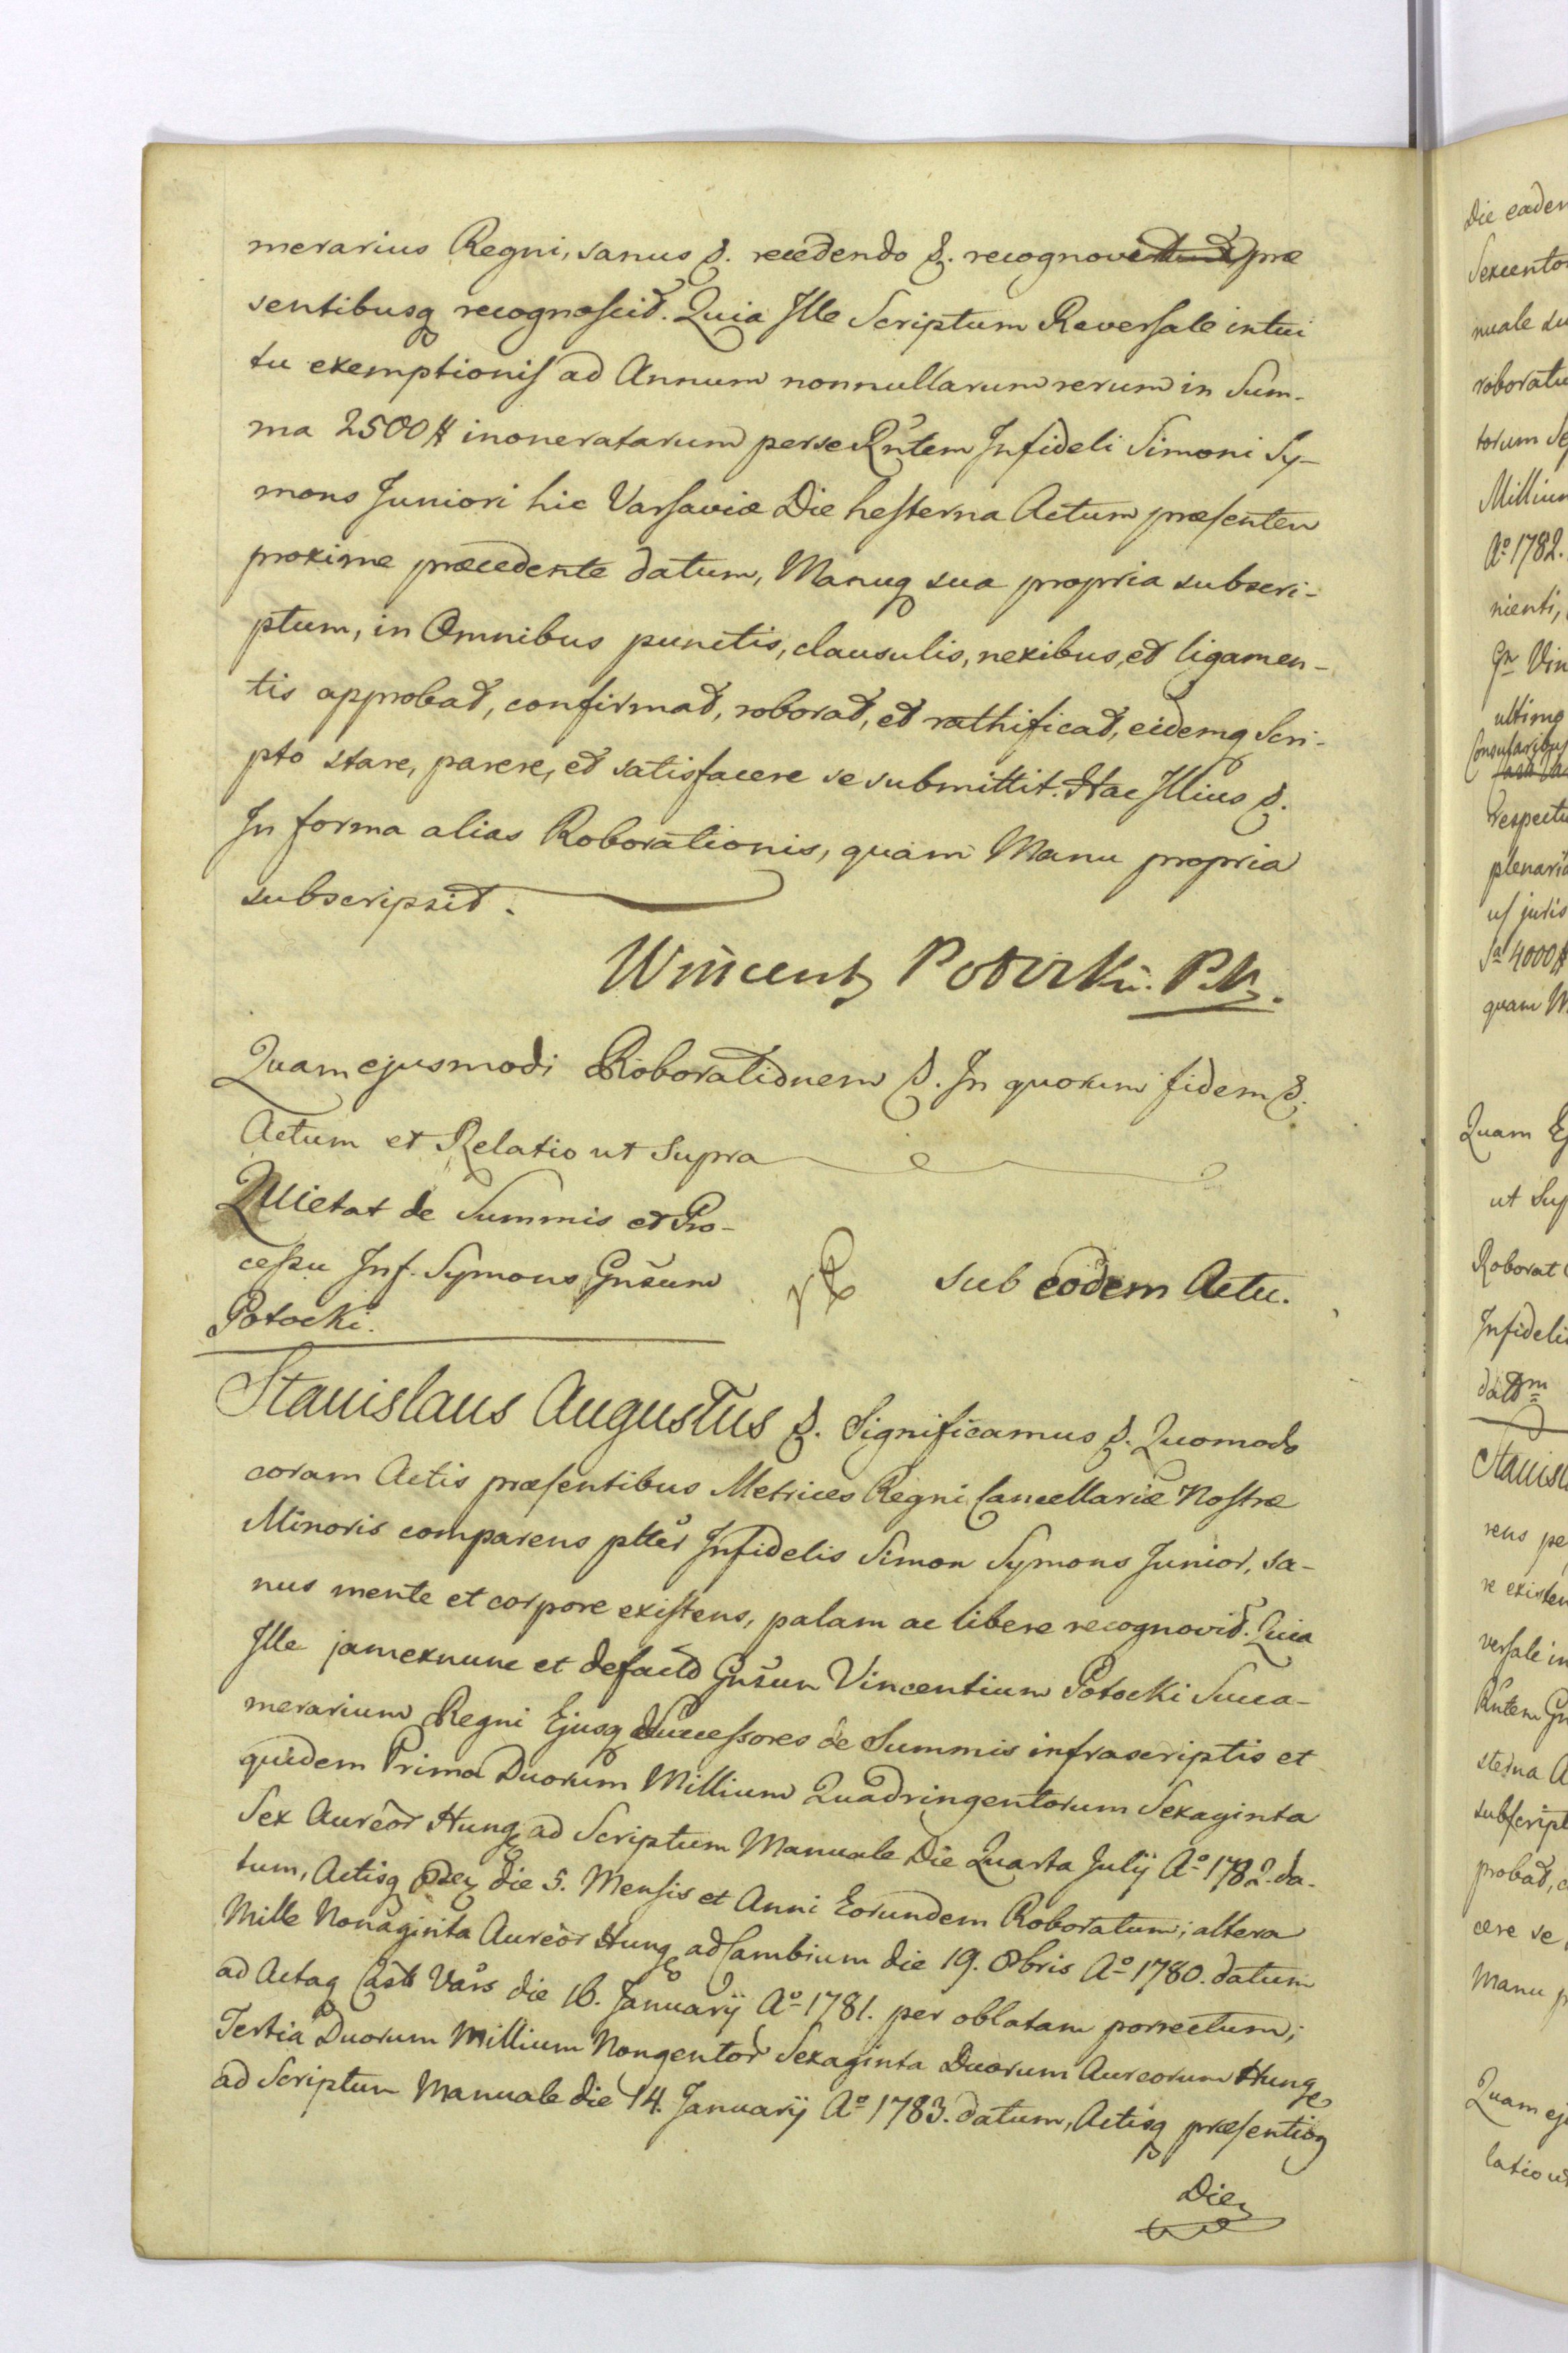 merarius Regni, sanus &. recedendo &. recognovit præ
sentibusq recognoscit. Quia Ille Scriptum Reversale intui
tu exemptionis ad Annum nonnullarum rerum in Sum-
ma 2500 # inoneratarum per se Rntem Infideli Simoni Sy-
mons Juniori hic Varsaviæ Die hesterna Actum præsentem
proxime præcedente datum, Manuq sua propria subscri-
ptum, in Omnibus punctis, clausulis, nexibus, et ligamen-
tis approbat, confirmat, roborat, et rathificat, eidemq Scri-
pto stare, parere, et satisfacere se submittit. Hac Illius &.
In forma alias Roborationis, quam Manu propria
subscripsit.
Wincenty Potocki. P.K.
Quam ejusmodi Roborationem &. In quorum fidem &.
Actum et Relatio ut Supra
Quietat de Summis et Pro-
cessu Inf. Symons Gnsum
Potocki.
sub eodem Actu.
Stanislaus Augustus &. Significamus &. Quomodo
coram Actis præsentibus Metrices Regni Cancellariæ Nostræ
Minoris comparens ptter Infidelis Simon Symons Junior, sa-
nus mente et corpore existens, palam ac libere recognovit. Quia
Ille jam ex nunc et de facto Gnsum Vincentium Potocki Succa-
merarium Regni Ejusq Successores de Summis infrascriptis et
quidem Prima Duorum Millium Quadringentorum Sexaginta
Sex Aureor Hung ad Scriptum Manuale Die Quarta Julij Ao 1782. da-
tum, Actisq die 5. Mensis et Anni Eorundem Roboratum; altera
Mille Nonaginta Aureor Hung ad Cambium die 19. 8bris Ao 1780. datum
ad Actaq Cast Vars die 16. Januarij Ao 1781. per oblatam porrectum;
Tertia Duorum Millium Nongentor Sexaginta Duorum Aureorum Hung
ad Scriptum Manuale die 14. Januarij Ao 1783. datum, Actisq præsentibq
Die
Die eadem
Sexcento
nuale
roboratu
torum
Million
Ao 1782.
nienti,
Gn Vin
ultimo
Consularibus
respectu
plenari
us juris
Sa 4000 #
quam
Quam Ej
ut Sup
Roborat
Infideli
dattm
Stanisl
rens pe
re existen
versale in
Rntem Gn
sterna A
subscript
probat, c
cere se
Manu p
Quam ej
latio ut